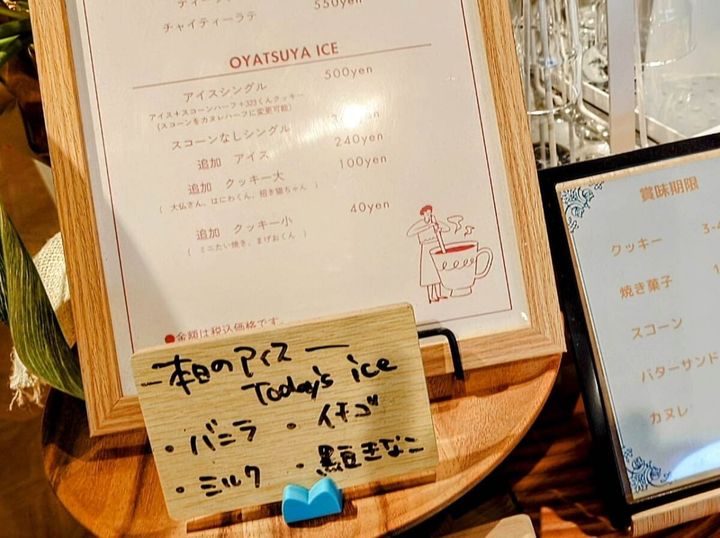 チャイティーラテ
550yen
OYATSUYA ICE
アイスシングル 500yen
アイス+スコーンハーフ+323くんクッキー
(スコーンをカヌレハーフに変更可能)
スコーンなしシングル
追加 アイス 240yen
追加 クッキー大 100yen
( 大仏さん、はにわくん、招き猫ちゃん )
追加 クッキー小 40yen
( ミニたい焼き、まげおくん )
●金額は税込価格です。
本日のアイス
Today's ice
・バニラ ・イチゴ
・ミルク ・黒豆きなこ
賞味期限
クッキー
焼き菓子
スコーン
バターサンド
カヌレ